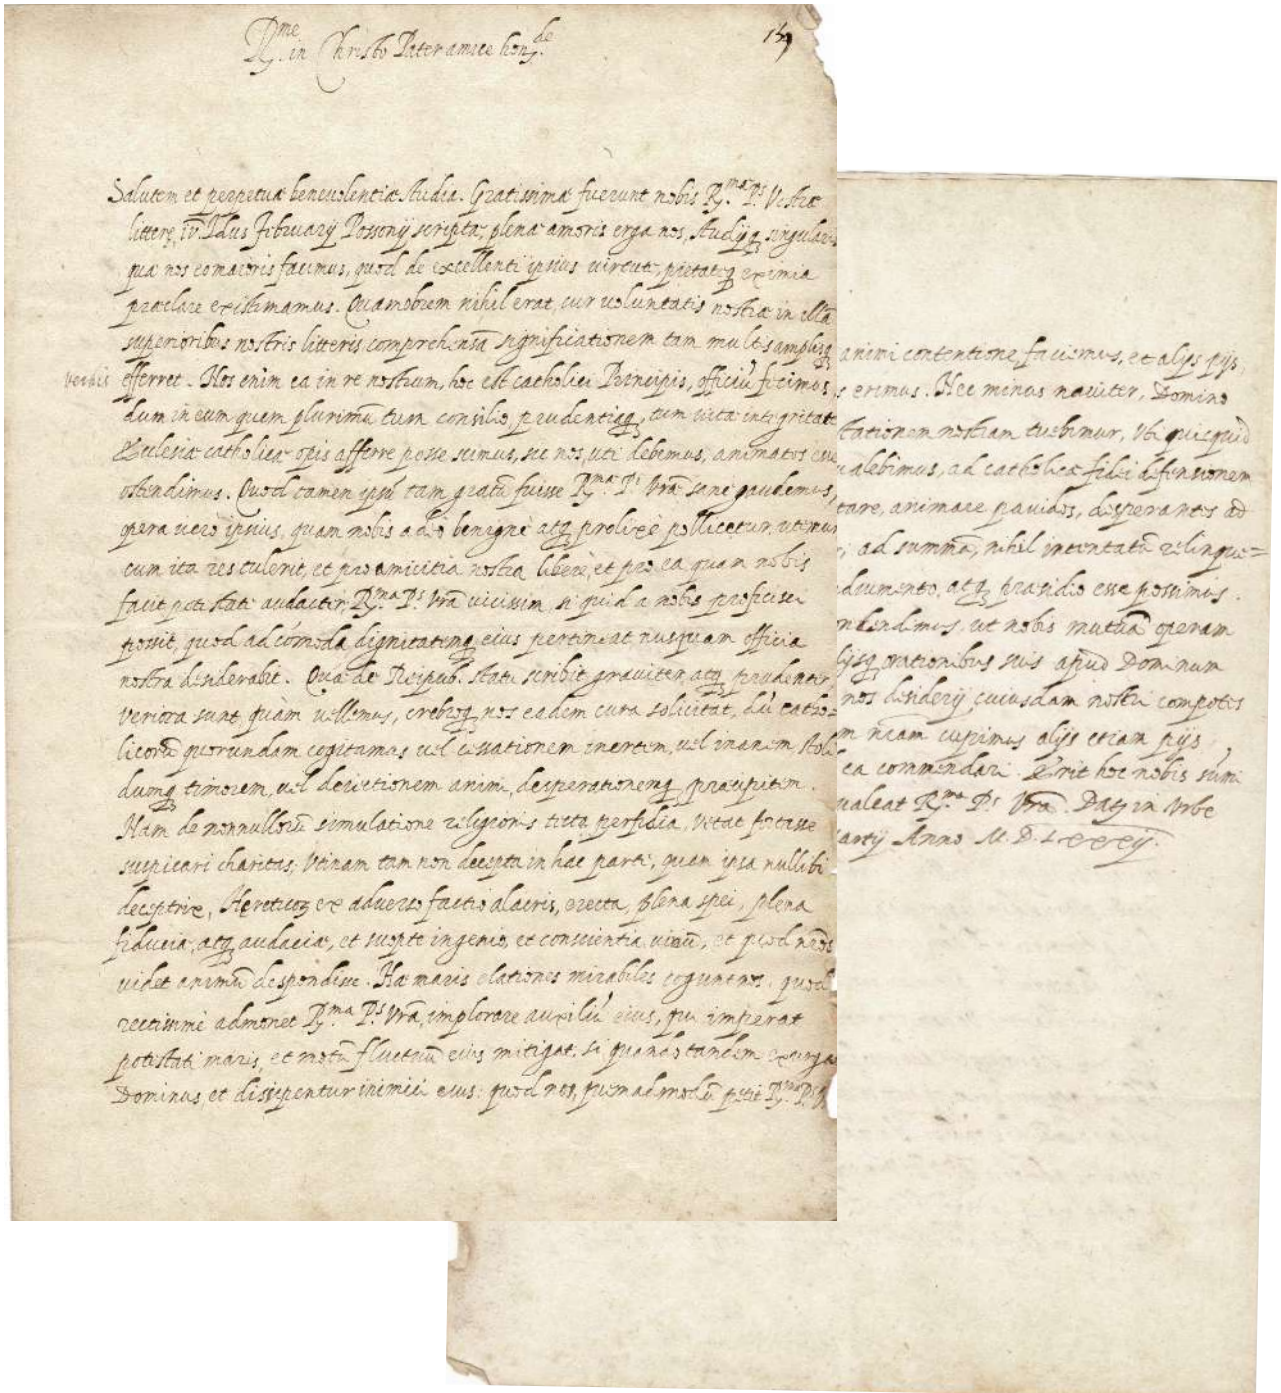 R.me in Christo Pater amice hon.de
159
Salutem et perpetuæ benevolentiæ studia. Gratissimæ fuerunt nobis R.mæ P.s Vestræ
litterę, iv. Idus Februarij Possonij scriptæ, plenæ amoris erga nos, studijq; singularis
quæ nos eo maioris facimus, quod de excellenti ipsius virtute, pietateq; eximia
præclare existimamus. Quamobrem nihil erat, cur voluntatis nostræ in illā
superioribus nostris litteris comprehensā significationem tam multis amplisq;
verbis efferret. Nos enim ea in re nostrum, hoc est catholici Principis, officiū fecimus,
dum in eum quem plurimū tum consilio, prudentiaq; tum vitæ integritate
Ecclesiæ catholicæ opis afferre posse scimus, sic nos, uti debimus, animatos esse
ostendimus. Quod tamen ipsū tam gratū fuisse R.mæ P.i Vræ sane gaudemus,
opera vero ipsius, quam nobis adeo benigne atq; prolixè pollicetur, utemur
cum ita res tulerit, et pro amicitia nostra liberè, et pro ea quam nobis
facit potestate audacter, R.ma P.s Vrā vicissim, si quid a nobis proficisci
possit, quod ad cōmoda dignitatemq; eius pertineat nusquam officia
nostra desiderabit. Quæ de Reipub. statu scribit graviter, atq; prudenter
veriora sunt, quàm vellemus, crebroq; nos eadem cura solicitat, dū catho-
licorū quorundam cogitamus vel cessationem inertem, vel inanem stoli
dumq; timorem, vel deiectionem animi, desperationemq; præcipitem.
Nam de nonnullorū simulatione religionis tecta perfidia, vetat fortasse
suspicari charitas, Utinam tam non decepta in hac parte, quam ipsa nullibi
deceptrix, Hęreticoꝝ ex adverso factio alacris, erecta, plena spei, plena
fiduciæ, atq; audaciæ, et suopte ingenio, et conscientia virū, et quod nr̄os
videt animū despondisse. Hæ maris elationes mirabiles cogunt nos, quod
rectissimè admonet R.ma P.s Vrā, implorare auxiliū eius, qui imperat
potestati maris, et motū fluctuū eius mitigat, si quando tandem exurgat
Dominus, et dissipentur inimici eius: quod nos, quemadmodū petit R.ma P.s V
animi contentione faciemus, et alijs pijs,
s erimus. Nec minus naviter, Domino
tationem nostram tuebimur, uti quicquid
valebimus, ad catholicæ fidei defensionem
tare, animare pavidos, desperantes ad
; ad summā, nihil intentatū relinque=
diumento, atq; præsidio esse possimus.
ntendimus, ut nobis mutuā operam
ijsq; orationibus suis apud Dominum
nos desiderij cuiusdam nostri compotes
m nr̄am cupimus alijs etiam pijs
ea commendari. Erit hoc nobis sūmi
valeat R.ma P.s Vrā. Datȝ in Urbe
artij Anno M.D.Lxxxij.